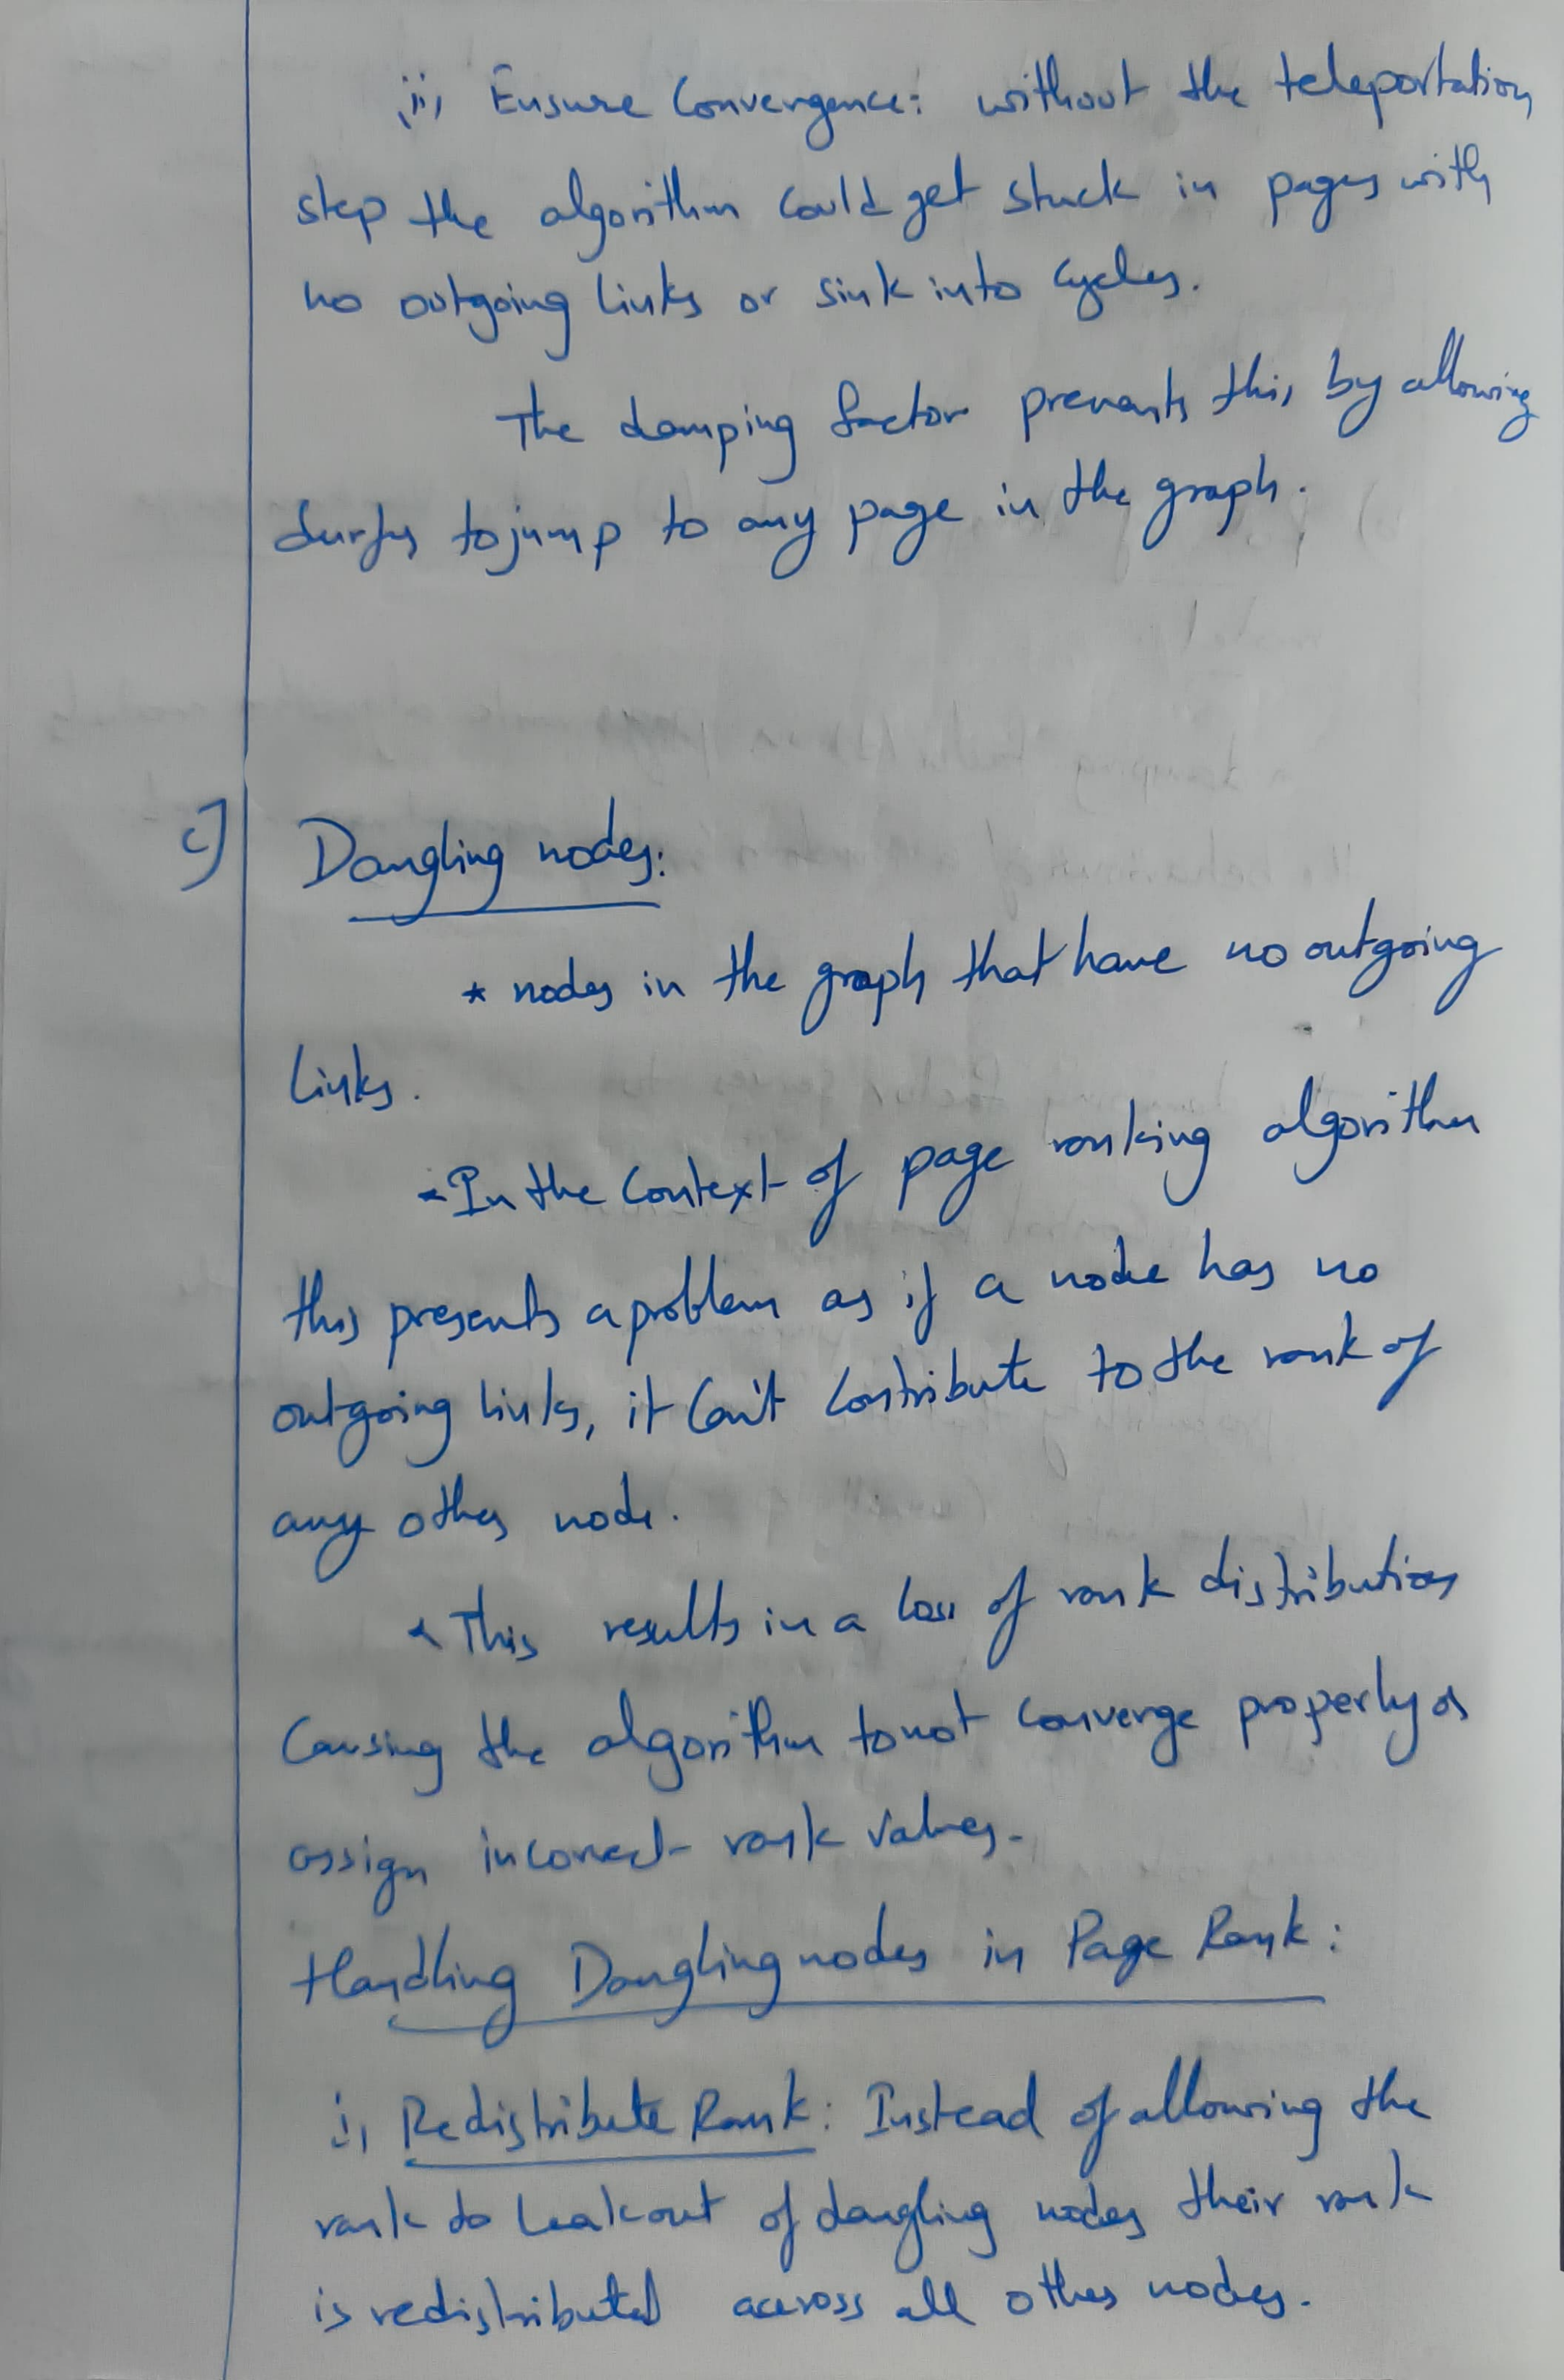 ii, Ensure Convergence: without the teleportation
step the algorithm could get stuck in pages with
no outgoing links or sink into cycles.
The damping factor prevents this, by allowing
surfer to jump to any page in the graph.
c] Dangling nodes:
* nodes in the graph that have no outgoing
links.
* In the context of page ranking algorithm
this presents a problem as if a node has no
outgoing links, it can't contribute to the rank of
any other node.
* This results in a loss of rank distribution
causing the algorithm to not converge properly or
assign incorrect rank values.
Handling Dangling nodes in Page Rank:
i, Redistribute Rank: Instead of allowing the
rank to leak out of dangling nodes their rank
is redistributed across all other nodes.